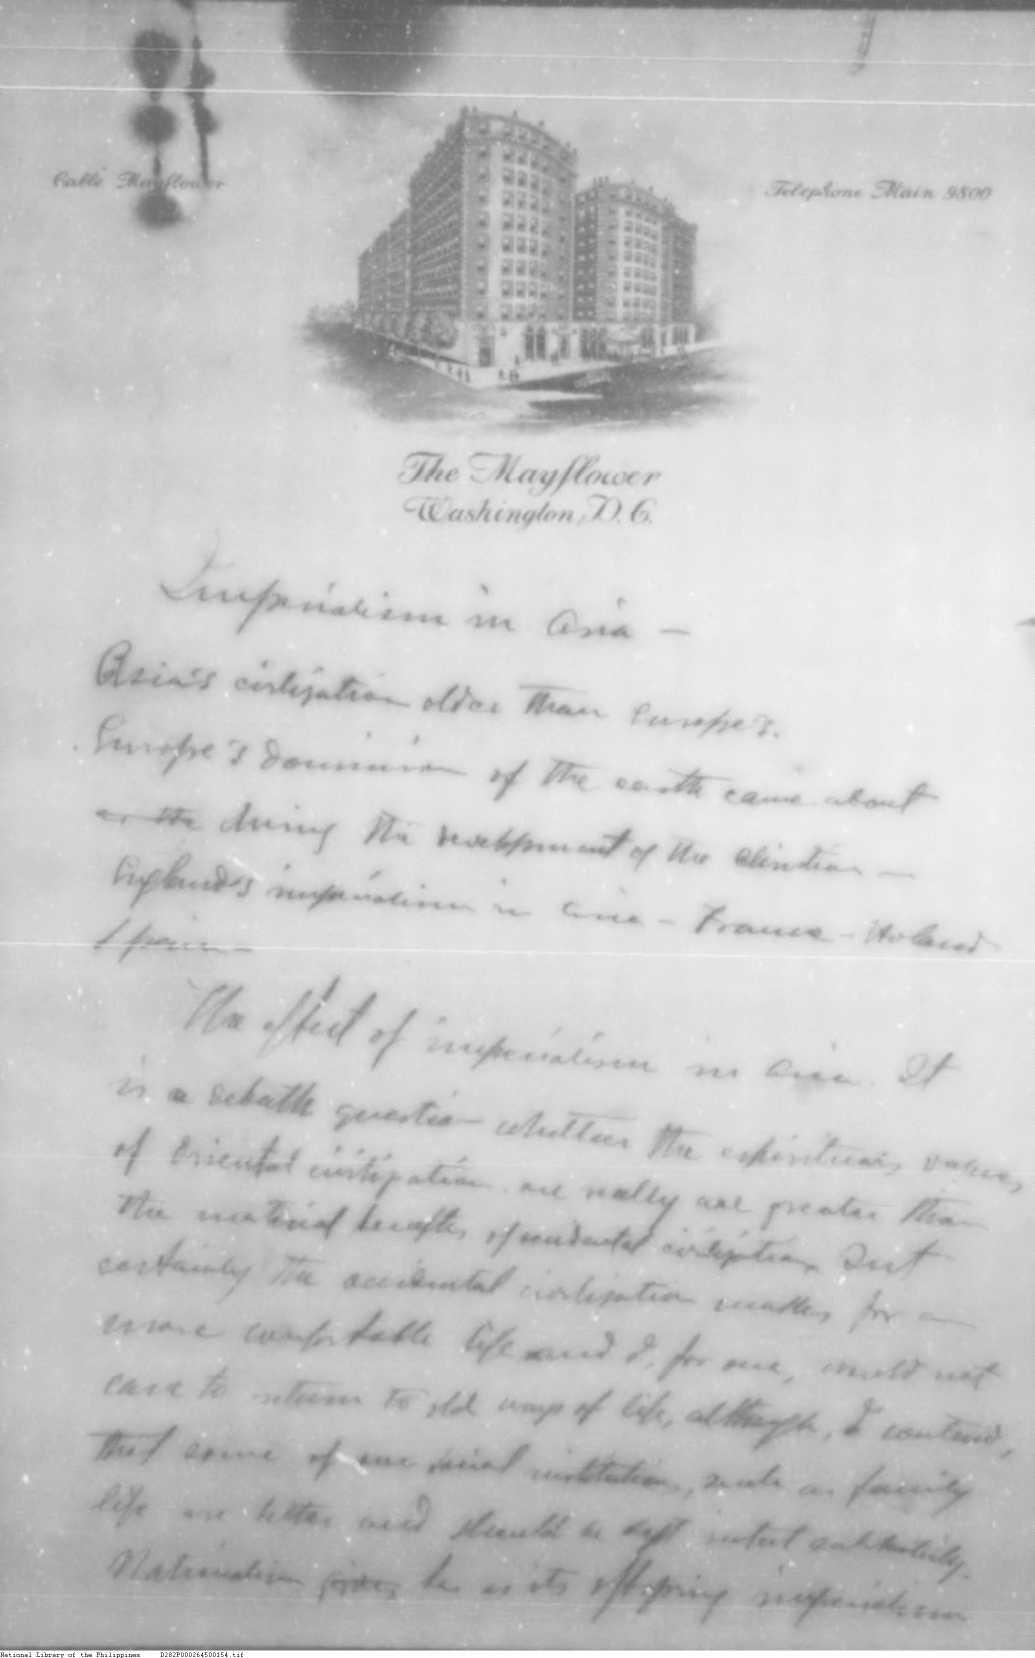 Cable Mayflower
Telephone Main 9800
The Mayflower
Washington, D.C.
Imperialism in Asia —
Asia's civilization older than Europe's.
Europe's dominion of the earth came about
or the during the development of the
England's imperialism in Asia — France — Holand
Spain —
The effect of imperialism in Asia. It
is a debatle question whether the espirituais values
of Oriental civilization are really are greater than
the material benefits of occidental civilization, but
certainly the occidental civilization makes for a
more comfortable life and I, for one, would not
care to return to old ways of life, although, I contend,
that some of our social institutions, such as family
life are better and should be kept intact
Nationalism gives has as its offspring imperialism
National Library of the Philippines D282P000264500154.tif